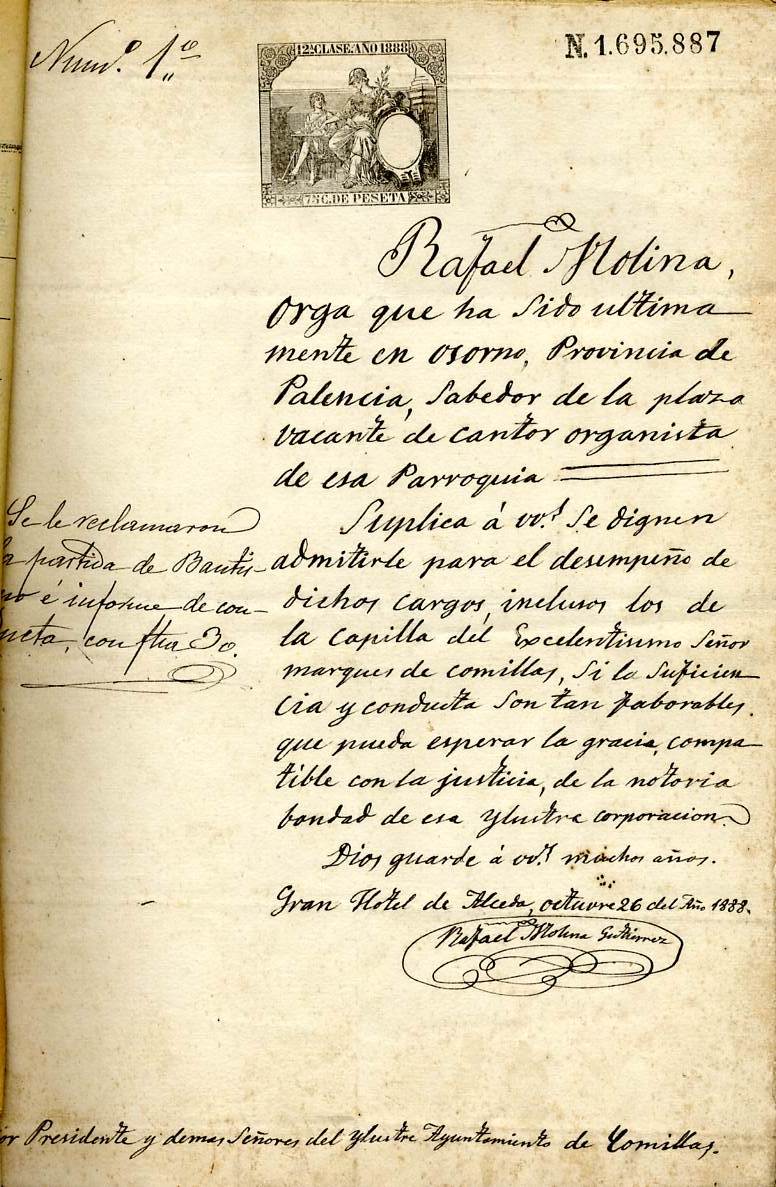 Num.º 1.º
12ª CLASE. AÑO 1888
75 C. DE PESETA
N. 1.695.887
Rafael Molina,
orga que ha sido ultima
mente en osorno, Provincia de
Palencia, Sabedor de la plaza
vacante de cantor organista
de esa Parroquia
Suplica á vv.s Se dignen
admitirle para el desempeño de
dichos cargos, inclusos los de
la capilla del Excelentisimo Señor
marques de comillas, Si la Suficien
cia y conducta Son tan faborables
que pueda esperar la gracia, compa
tible con la justicia, de la notoria
bondad de esa ylustre corporacion.
Dios guarde á vv.s muchos años.
Gran Hotel de Alceda, octuvre 26 del Año 1888.
Rafael Molina Gutierrez
Se le reclamaron
la partida de Bautis-
mo é informe de con-
ducta, con fha 30.
or Presidente y demas Señores del ylustre Ayuntamiento de Comillas.